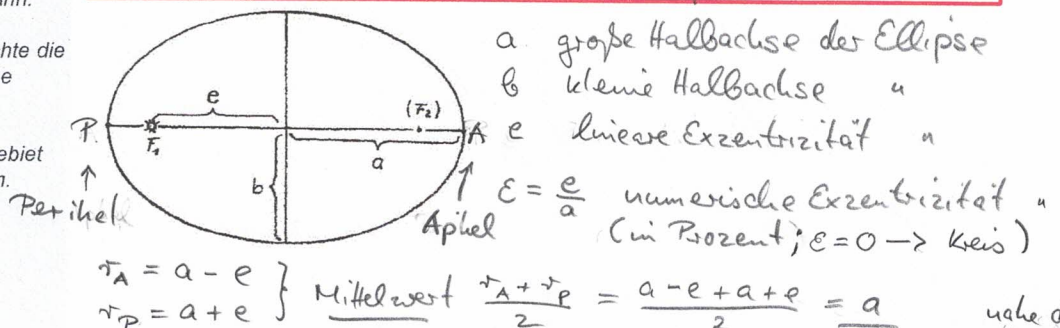 hte die
e
ebiet
n.
e
(F₂)
P
F₁
A
a
b
Perihel
Aphel
a große Halbachse der Ellipse
b kleine Halbachse "
e lineare Exzentrizität "
ε = e/a numerische Exzentrizität "
(in Prozent; ε=0 → Kreis)
r_A = a - e
r_P = a + e
} Mittelwert (r_A + r_P)/2 = (a - e + a + e)/2 = a
nahe